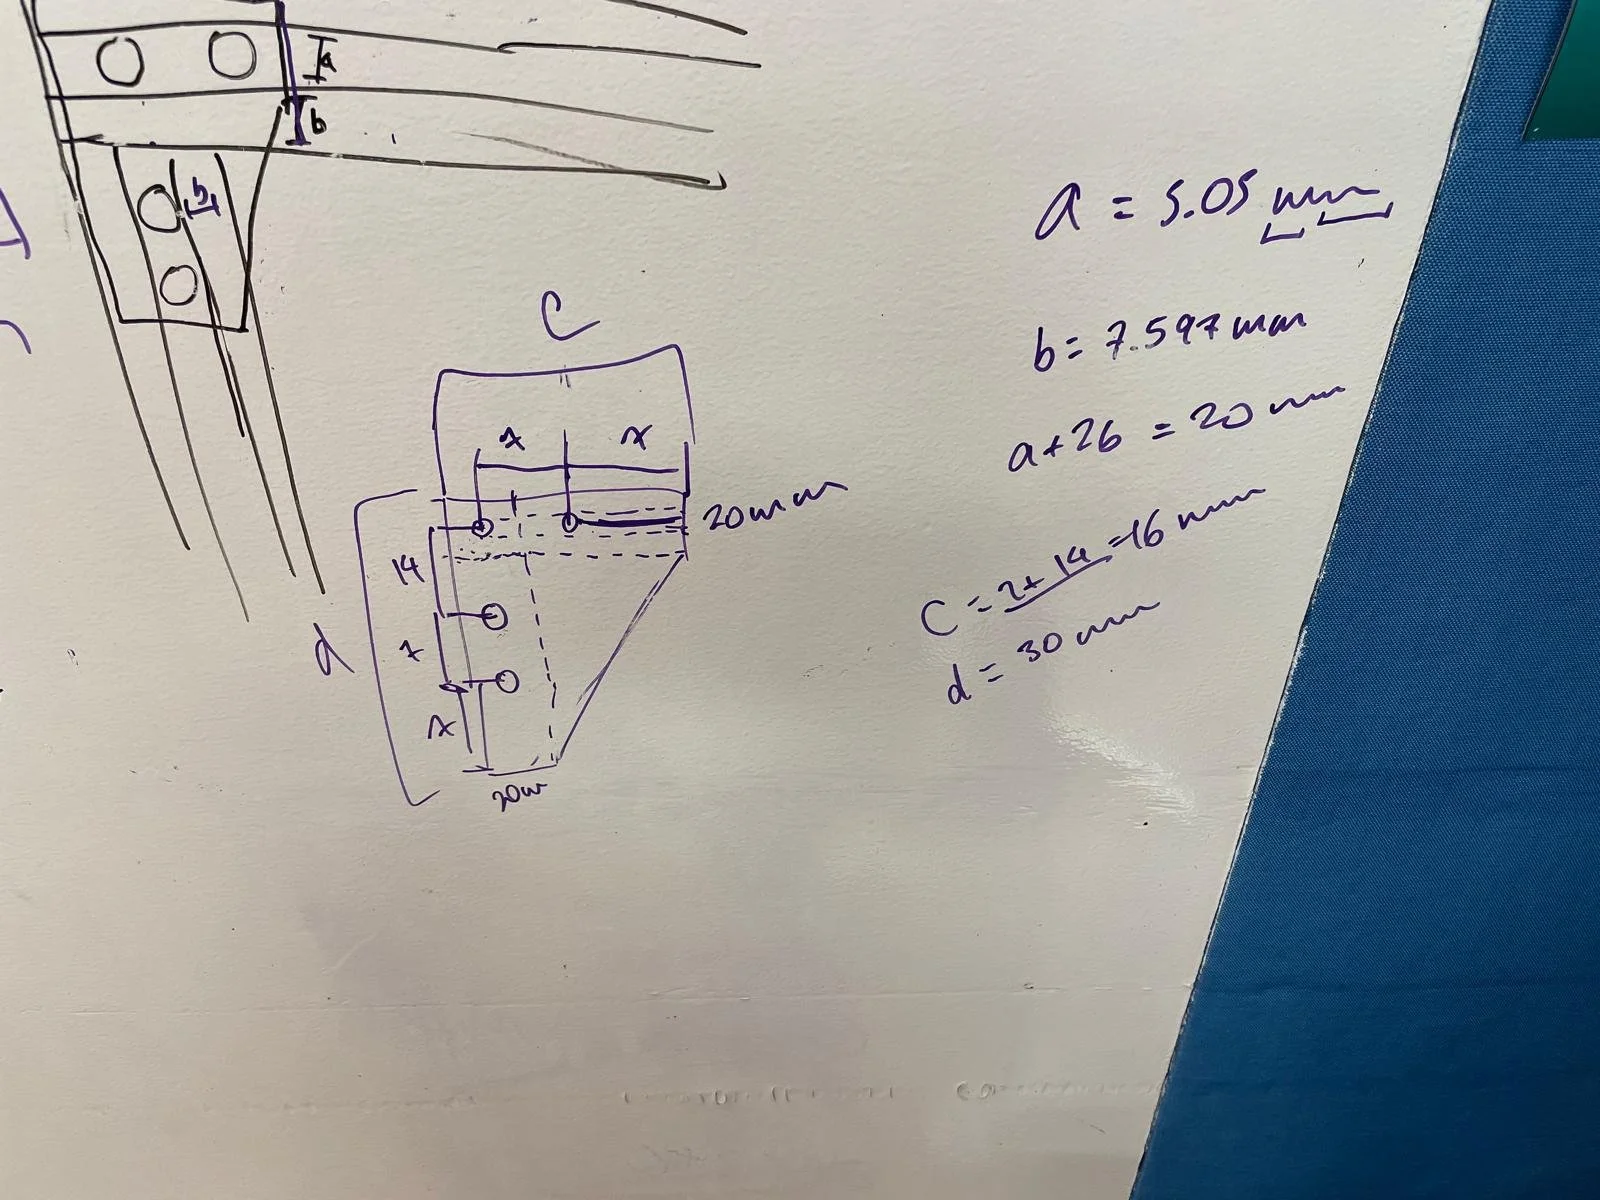 a
b
b
a = 5.05 mm
b = 7.597 mm
a+2b = 20 mm
C
7
7
20mm
14
7
7
d
20m
C = 2+14 = 16 mm
d = 30 mm